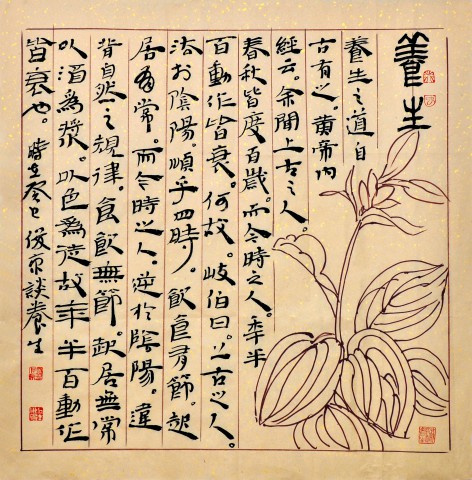 養生
養生之道自
古有之。黄帝内
經云。余聞上古之人。
春秋皆度百歲。而今時之人。年半
百動作皆衰。何故。岐伯曰。上古之人。
法於陰陽。順乎四時。飲食有節。起
居有常。而今時之人。逆於陰陽。違
背自然之規律。食飲無節。起居無常
以酒為漿。以色為徒故年半百動作
皆衰也。時在癸巳 俊京談養生